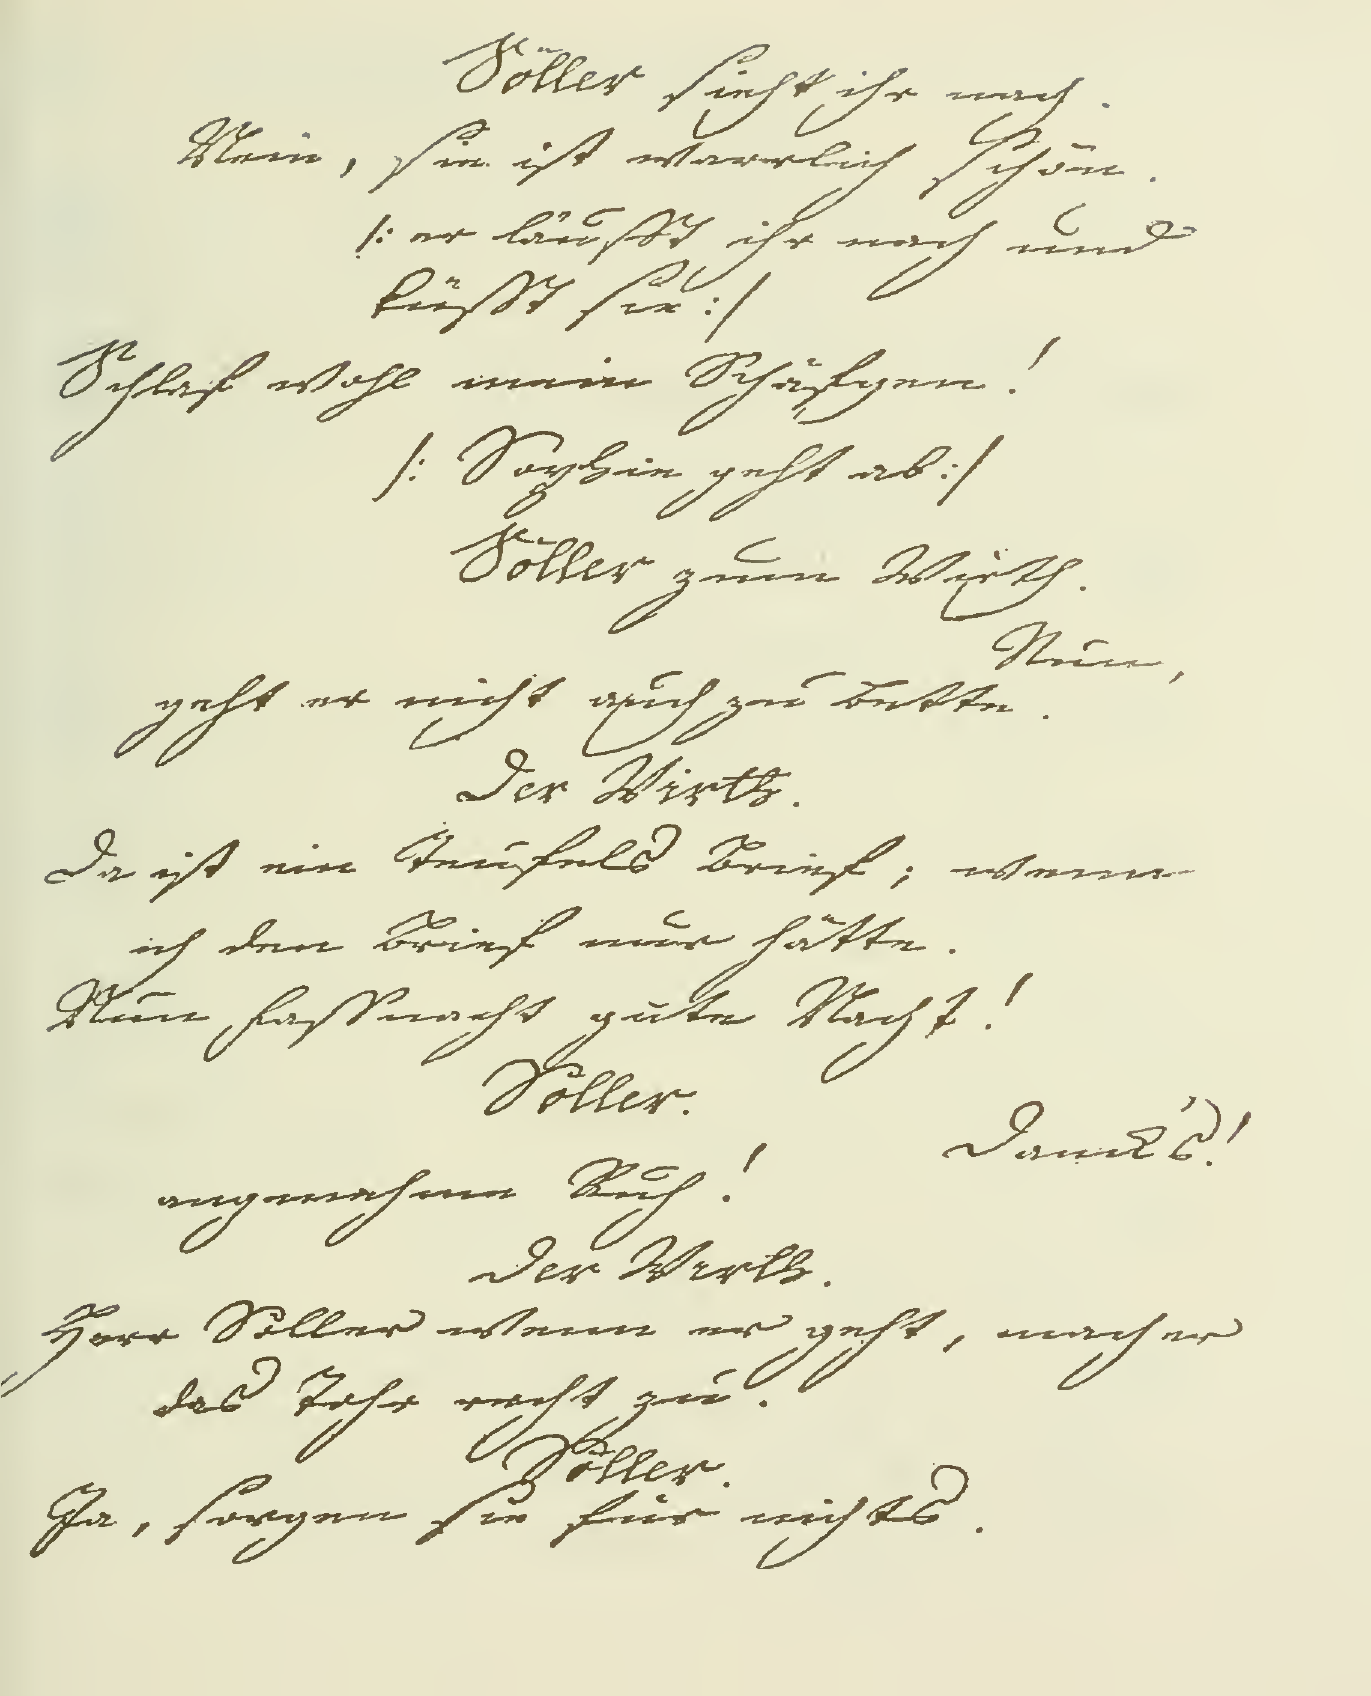 Söller sieht ihr nach.
Nein, sie ist warrlich schön.
/: er läufft ihr nach und
küsst sie :/
Schlaf wohl mein Schäfgen!
/: Sophie geht ab :/
Söller zum Wirth.
Nun,
geht er nicht auch zu Bette.
Der Wirth.
Da ist ein Teufels Brief; wenn
ich den Brief nur hätte.
Nun Fassnacht gute Nacht!
Söller.
Danck's!
angenehme Ruh!
Der Wirth.
Herr Söller wenn er geht, mach er
das Tohr recht zu.
Söller.
Ja, sorgen sie für nichts.